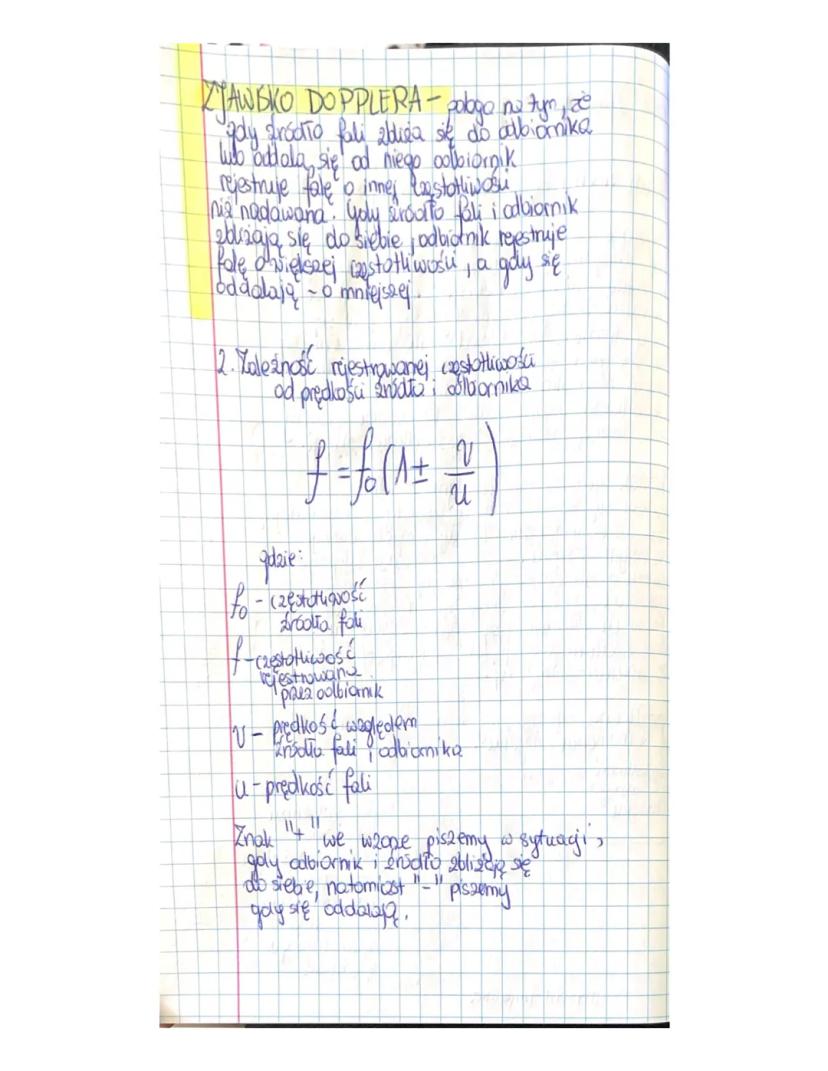 ZJAWISKO DOPPLERA - polega na tym, że
gdy źródło fali zbliża się do odbiornika
lub oddala się od niego odbiornik
rejestruje falę o innej częstotliwości
niż nadawana. Gdy źródło fali i odbiornik
zbliżają się do siebie, odbiornik rejestruje
falę o większej częstotliwości, a gdy się
oddalają - o mniejszej.
2. Zależność rejestrowanej częstotliwości
od prędkości źródła i odbiornika
f = f₀ (1 ± v/u)
gdzie:
f₀ - częstotliwość
źródła fali
f - częstotliwość
rejestrowana
przez odbiornik
v - prędkość względem
źródła fali i odbiornika
u - prędkość fali
Znak "+" we wzorze piszemy w sytuacji,
gdy odbiornik i źródło zbliżają się
do siebie, natomiast "-" piszemy
gdy się oddalają.